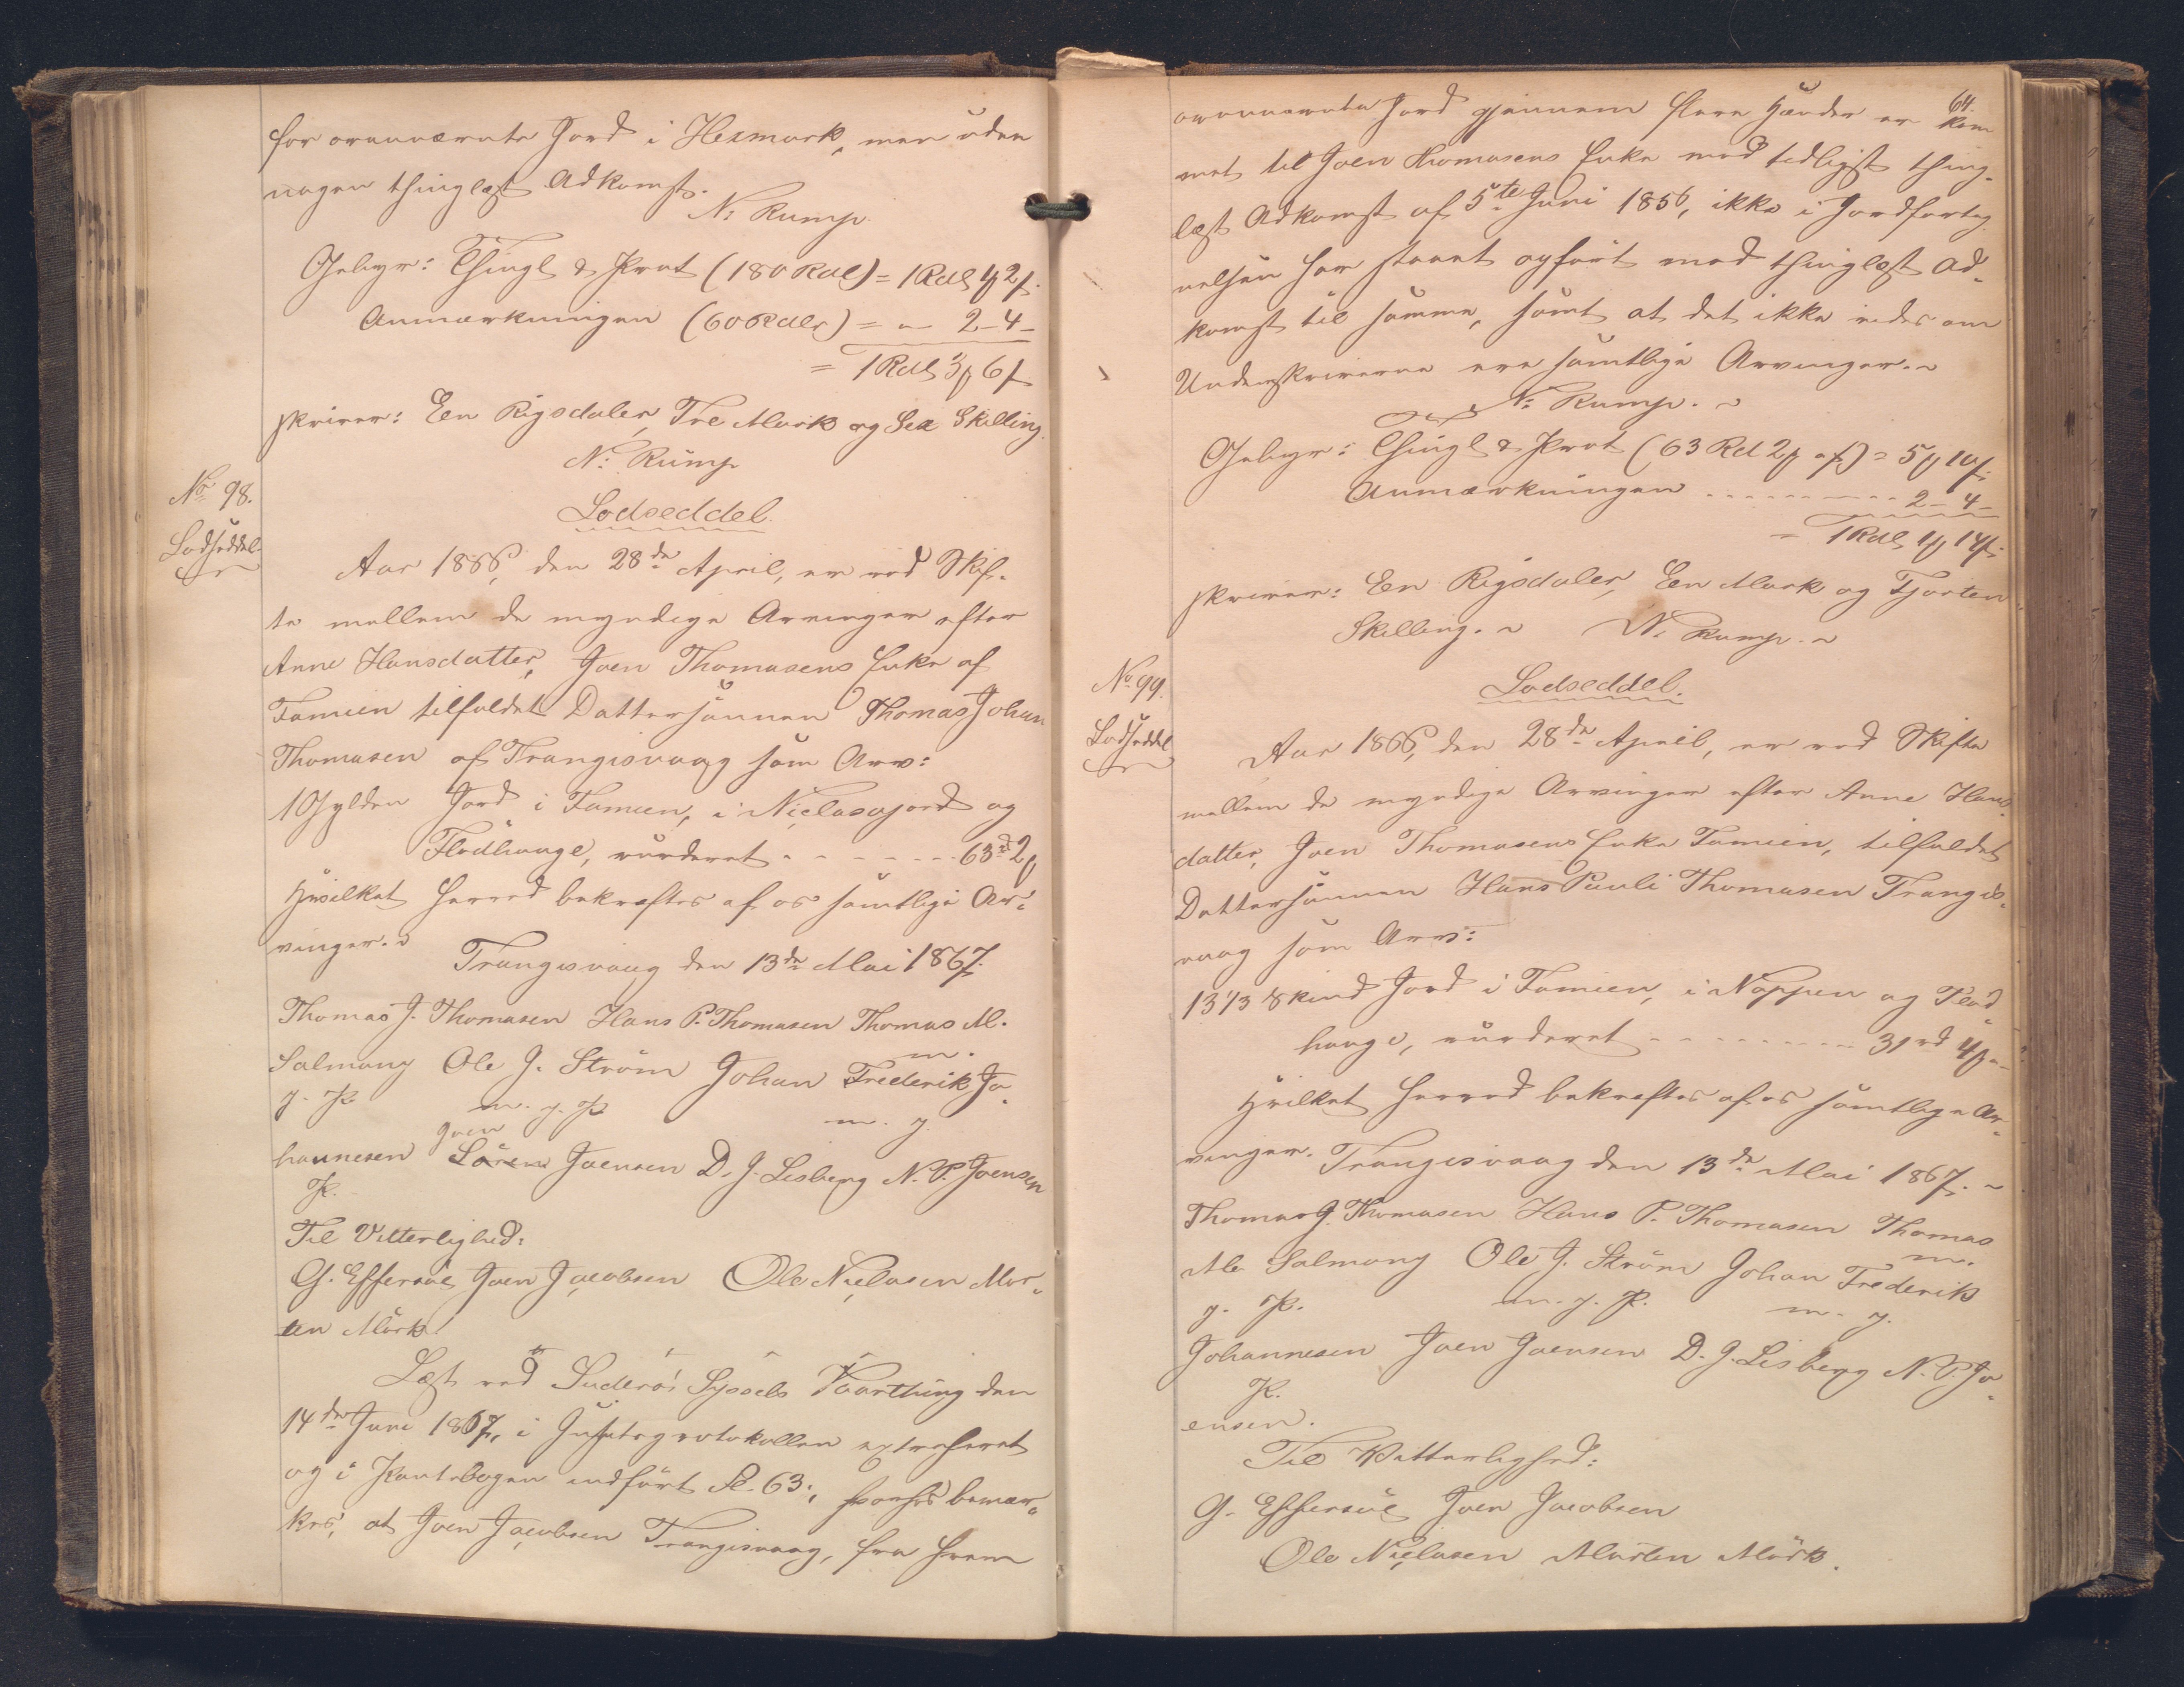 for ovennævnte Jord i Hexmark, men uden
nogen thinglæst Adkomst.
N: Rump
Gebyr: Thingl & Prot (180 Rdl) = 1 Rdl 4 ꝳ 2 ß.
Anmærkningen (60 Rdlr) = — 2 - 4 -
= 1 Rdl 3 ꝳ 6 ß
skriver: Een Rigsdaler, Tre Mark og Sex Skilling.
N: Rump
No 98.
Lodseddel.
Lodseddel.
Aar 1866, den 28de April, er ved Skif-
te mellem de myndige Arvinger efter
Anne Hansdatter, Joen Thomasens Enke af
Famien tilfaldet Dattersønnen Thomas Johan
Thomasen af Trangisvaag som Arv:
1 Gylden Jord i Famien, i Niclasajord og
Flødhauge, vurderet - - - - - - 63 rd 2 ꝳ
Hvilket herved bekræftes af os samtlige Ar-
vinger.
Trangisvaag den 13de Mai 1867.
Thomas J. Thomasen Hans P. Thomasen Thomas M.
m.
Salmong Ole J. Strøm Johan Frederik Jo-
j. P. m. j. P. m. j.
Joen
hannesen Sören Joensen D. J. Lisberg N. P. Joensen
P.
Til Vitterlighed:
G. Effersøe Joen Jacobsen Ole Niclasen Mor-
ten Mörk
Læst ved Suderö Syssels Vaarthing den
14de Juni 1867, i Justitsprotokollen extraheret
og i Pantebogen indført Fol. 63., hvorhos bemær-
kes, at Joen Jacobsen Trangisvaag, fra hvem
64.
ovennævnte Jord gjennem flere Hænder er kom
met til Joen Thomasens Enke med tidligst thing-
læst Adkomst af 5te Juni 1856, ikke i Jordforteg
nelsen har staaet opført med thinglæst Ad-
komst til samme, samt at det ikke vides om
Underskriverne ere samtlige Arvinger.
N: Rump.
Gebyr: Thingl & Prot (63 Rd 2 ꝳ - ß) = 5 ꝳ 10 ß.
Anmærkningen - - - - - - - - 2 - 4 -
= 1 Rdl 1 ꝳ 14 ß.
skriver: Een Rigsdaler, Een Mark og Fjorten
Skilling. N: Rump.
No 99.
Lodseddel
Lodseddel.
Aar 1866, den 28de April, er ved Skifte
mellem de myndige Arvinger efter Anne Hans-
datter, Joen Thomasens Enke Famien, tilfaldet
Dattersønnen Hans Pauli Thomasen Trangis-
vaag som Arv:
13 1/3 Skind Jord i Famien, i Nøppen og Flød
hauge, vurderet - - - - - - - - 31 rd 4 ꝳ -
Hvilket herved bekræftes af os samtlige Ar-
vinger. Trangisvaag den 13de Mai 1867.
Thomas J. Thomasen Hans P. Thomasen Thomas
m.
M. Salmong Ole J. Strøm Johan Frederik
j. P. m. j. P. m. j.
Johannesen Joen Joensen D. J. Lisberg N. P. Jo-
P.
ensen.
Til Vitterlighed:
G. Effersøe Joen Jacobsen
Ole Niclasen Morten Mörk.